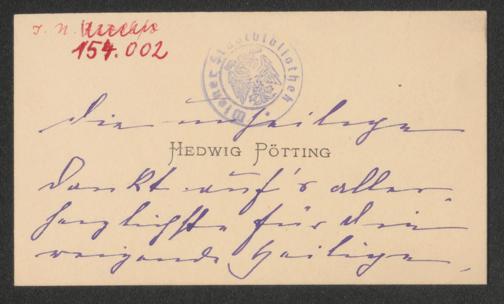 I. N.
154.002
Wiener Stadtbibliothek
die unheilige
HEDWIG PÖTTING
dankt auf's aller
herzlichste für die
reizende Heilige.